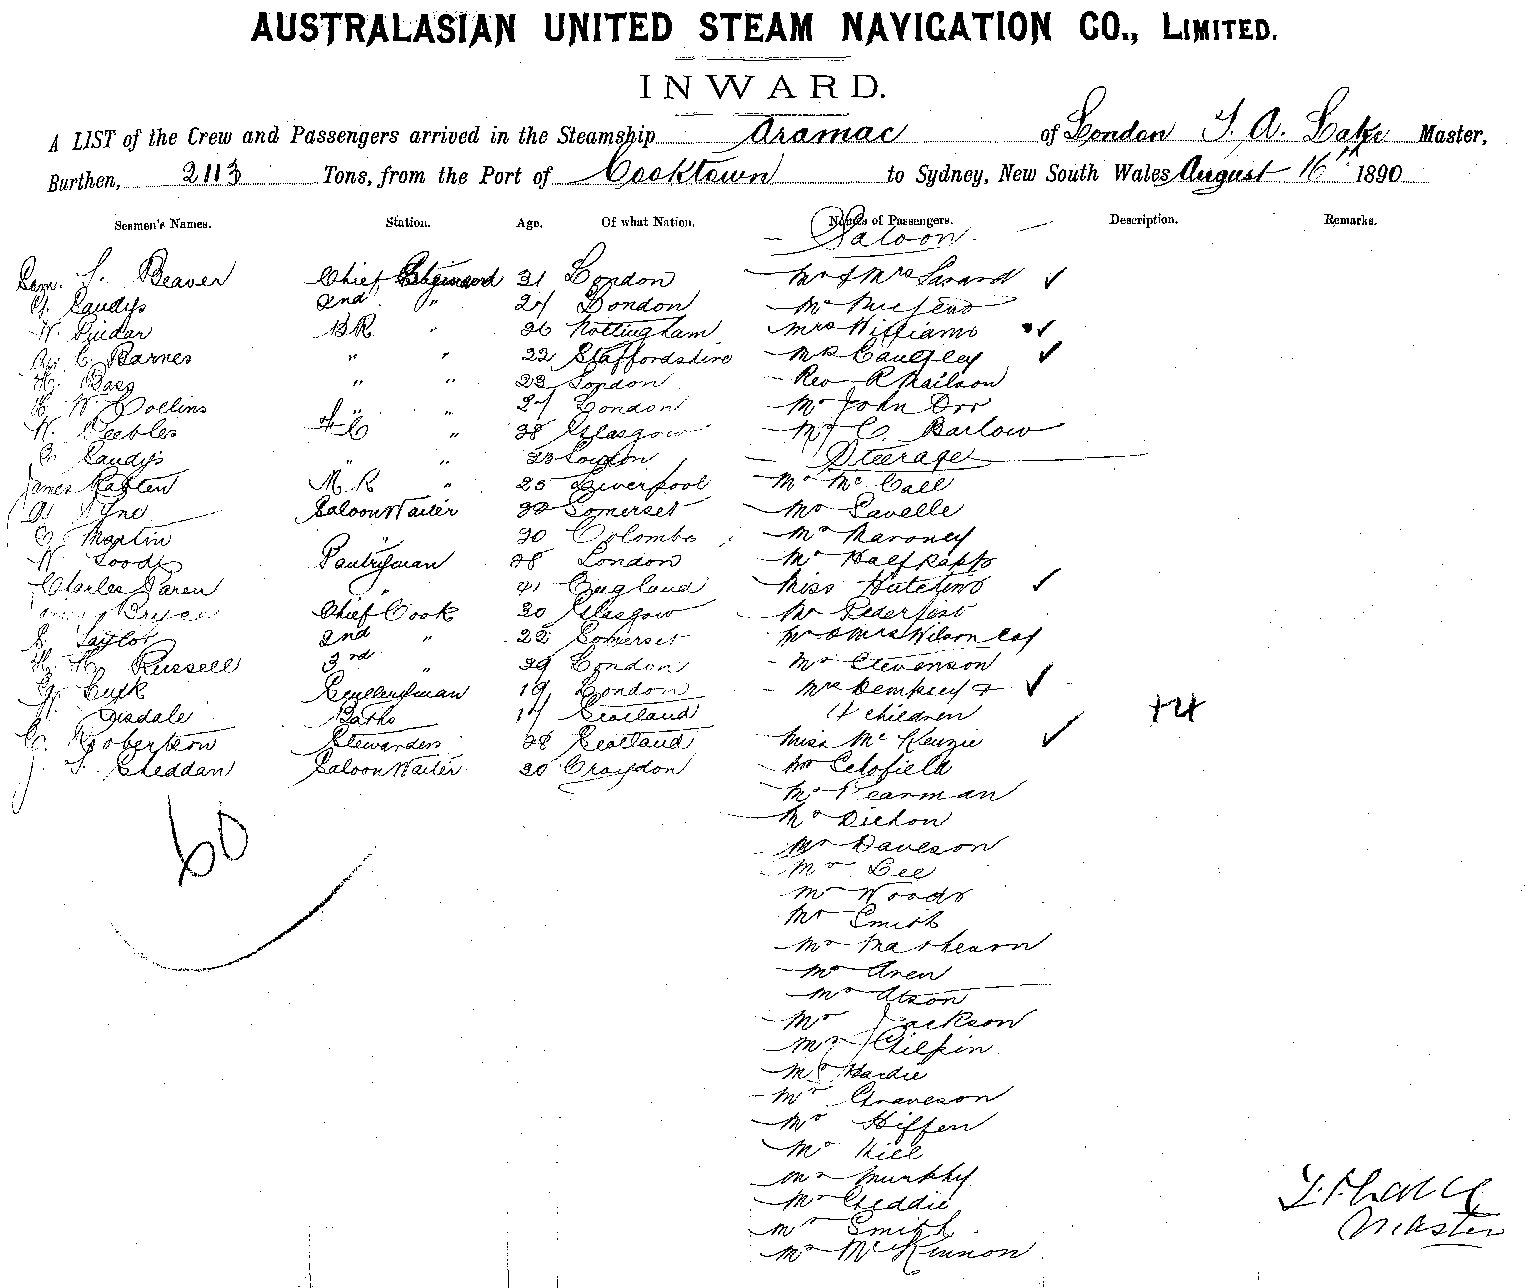 AUSTRALASIAN UNITED STEAM NAVIGATION CO., LIMITED.
INWARD.
A LIST of the Crew and Passengers arrived in the Steamship Aramac of London T. A. Lake Master,
Burthen, 2113 Tons, from the Port of Cooktown to Sydney, New South Wales August 16th 1890
Seamen's Names. Station. Age. Of what Nation. Names of Passengers. Description. Remarks.
Saloon
Beaver Chief 31 London Mr & Mrs
Sandys 2nd " 24 London Mr
W. BR " 26 Nottingham Mrs Williams
C Barnes " " 22 Staffordshire Caulfley
H. Bass " " 23 London Rev R Mailson
W Collins " " 24 London Mr John Orr
W. Peebles FC " 38 Glasgow Mr C. Barlow
Sandys " " 23 London Steerage
James M.R " 25 Liverpool Mr Mc Call
Saloon Waiter Somerset Mr Lavelle
Martin " 30 Colombo Mr Maroney
W. Pantryman 28 London Mr Halfkapp
Charles " 41 England Miss Hutchins
Bryce Chief Cook 30 Glasgow Mr
S. Taylor 2nd " 22 Somerset Mr & Mrs Wilson
Russell 3rd " 29 London Mr Stevenson
Sculleryman 19 London Mrs Dempsey &
Baths 17 Scotland 4 children +4
Robertson Stewardess 38 Scotland Miss Mc Kenzie
Steddan Saloon Waiter 30 Croydon Mr Schofield
Mr Pearman
60 Mr Dickon
Mr Daveson
Mr Lee
Mr Woods
Mr Smith
Mr Mathearn
Mr Aren
Mr Atson
Mr Jackson
Mr Chilpin
Mr Hardie
Mr Graveson
Mr Hiffen
Mr Hill
Mr Murphy
Mr Cheddie
Mr Smith
Mr Mc Kinnon
Master